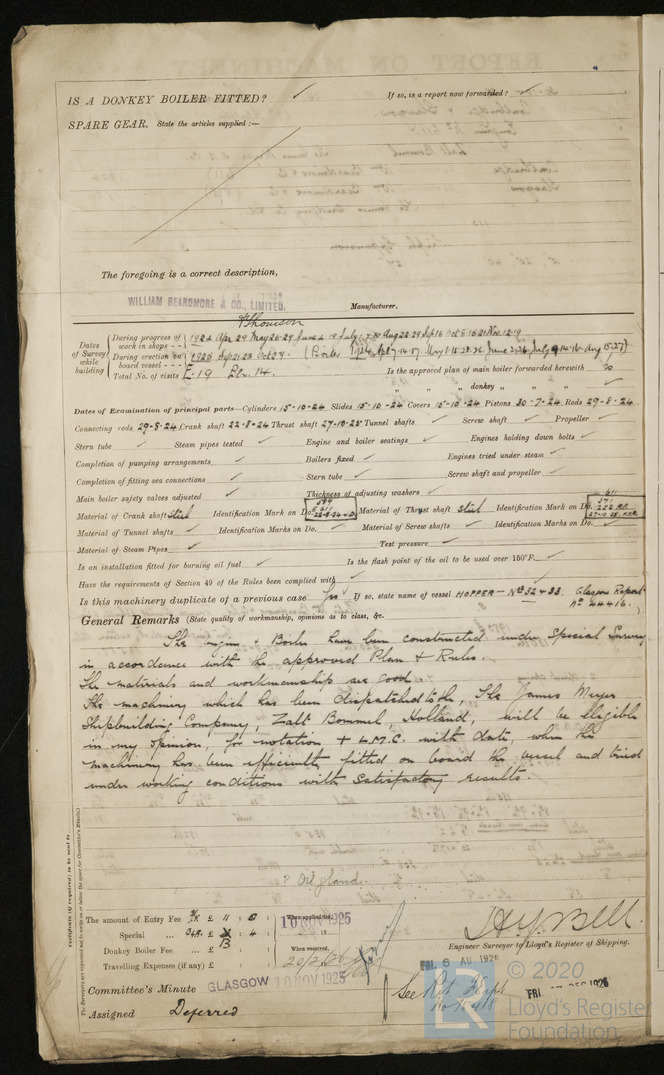 IS A DONKEY BOILER FITTED? ✓ If so, is a report now forwarded? ✓
SPARE GEAR. State the articles supplied :—
The foregoing is a correct description,
WILLIAM BEARDMORE & CO., LIMITED. Manufacturer.
Thomson
Dates of Survey while building
During progress of work in shops - - 1924 Apr 29 May 26 29 June 19 July Aug 22 29 Sep 16 Oct 15 21 Nov 12 19
During erection on board vessel - - - 1925 Sep 21 23 Oct 29. (Boiler Apl 7 14 17
Total No. of visits E. 19 Blr. 14. Is the approved plan of main boiler forwarded herewith no
" " " donkey " " "
Dates of Examination of principal parts—Cylinders 15-10-24 Slides 15-10-24 Covers 15-10-24 Pistons 30-7-24 Rods 29-8-24
Connecting rods 29-8-24 Crank shaft 22-8-24 Thrust shaft 27-10-23 Tunnel shafts ✓ Screw shaft ✓ Propeller ✓
Stern tube ✓ Steam pipes tested ✓ Engine and boiler seatings ✓ Engines holding down bolts ✓
Completion of pumping arrangements ✓ Boilers fixed ✓ Engines tried under steam ✓
Completion of fitting sea connections ✓ Stern tube ✓ Screw shaft and propeller ✓
Main boiler safety valves adjusted ✓ Thickness of adjusting washers ✓
Material of Crank shaft Steel Identification Mark on Do. Material of Thrust shaft Steel Identification Mark on Do.
Material of Tunnel shafts ✓ Identification Marks on Do. ✓ Material of Screw shafts ✓ Identification Marks on Do. ✓
Material of Steam Pipes ✓ Test pressure ✓
Is an installation fitted for burning oil fuel ✓ Is the flash point of the oil to be used over 150°F. ✓
Have the requirements of Section 49 of the Rules been complied with ✓
Is this machinery duplicate of a previous case Yes If so, state name of vessel HOPPER — Nos 32 & 33. Glasgow Report No 44416.
General Remarks (State quality of workmanship, opinions as to class, &c.
The Engine & Boiler have been constructed under Special Survey
in accordance with the approved Plan & Rules.
The materials and workmanship are good.
The machinery which has been dispatched to the, The James Meyer
Shipbuilding Company, Zalt Bommel, Holland, will be eligible
in my opinion, for notation + L.M.C. with date, when the
machinery has been efficiently fitted on board the vessel and tried
under working conditions with satisfactory results.
? Oil gland.
Certificate (if required) to be sent to
The Surveyors are requested not to write on or below the space for Committee's Minute.
The amount of Entry Fee £ 11 : 0 : When applied for, 10 NOV 1925
Special ... £ : 4 :
Donkey Boiler Fee ... £ : : When received,
Travelling Expenses (if any) £ : : 20/2/26
Engineer Surveyor to Lloyd's Register of Shipping.
Committee's Minute GLASGOW 10 NOV 1925 FRI. 6 AU 1926 FRI. DEC 1926
Assigned Deferred See Rot
© 2020
Lloyd's Register
Foundation